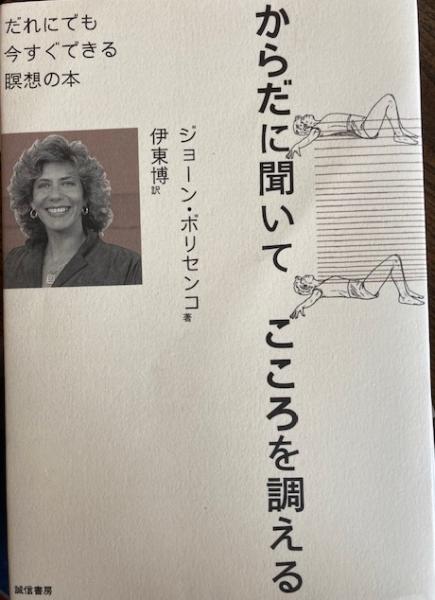 だれにでも
今すぐできる
瞑想の本
からだに聞いて こころを調える
ジョーン・ボリセンコ 著
伊東博 訳
誠信書房